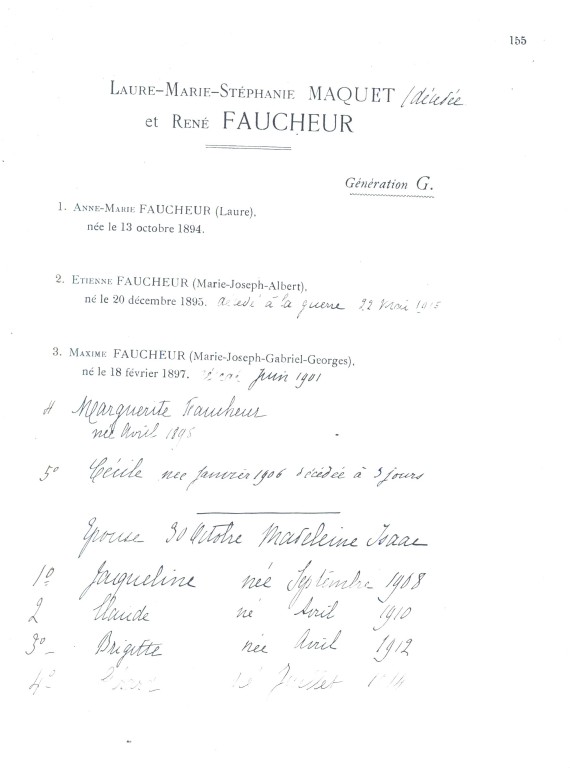 155
LAURE-MARIE-STÉPHANIE MAQUET / décédée
et RENÉ FAUCHEUR
Génération G.
1. ANNE-MARIE FAUCHEUR (Laure),
née le 13 octobre 1894.
2. ETIENNE FAUCHEUR (Marie-Joseph-Albert),
né le 20 décembre 1895. à la guerre 22 Mai 1915
3. MAXIME FAUCHEUR (Marie-Joseph-Gabriel-Georges),
né le 18 février 1897. Juin 1901
4 Marguerite Faucheur
née Avril 1898
5º Cécile née Janvier 1906 décédée à 3 jours
Epouse 30 Octobre Madeleine Isaac
1º Jaqueline née Septembre 1908
2 Claude né Avril 1910
3º- Brigitte née Avril 1912
4º- né Juillet 1914